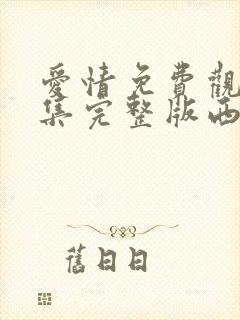 愛情免費觀
集完整版西
舊日日